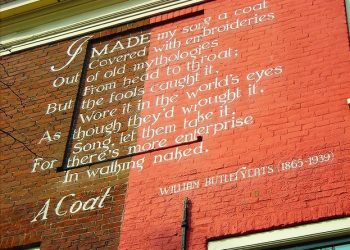 I MADE my song a coat
Covered with embroideries
Out of old mythologies
From heel to throat;
But the fools caught it,
Wore it in the world's eyes
As though they'd wrought it.
Song, let them take it,
For there's more enterprise
In walking naked.
WILLIAM BUTLER YEATS (1865-1939)
A Coat